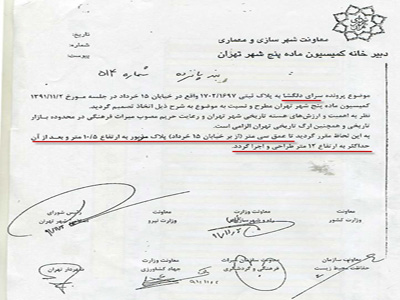 معاونت شهر سازی و معماری
دبیر خانه کمیسیون ماده پنج شهر تهران
تاریخ:
شماره:
پیوست
بند پانزده شماره ۵۱۴
موضوع پرونده سرای دلگشا به پلاک ثبتی ۱۷۰۲/۱۶۹۷ واقع در خیابان ۱۵ خرداد در جلسه مورخ ۱۳۹۱/۱۱/۲
کمیسیون ماده پنج شهر تهران مطرح و نسبت به موضوع به شرح ذیل اتخاذ تصمیم گردید.
نظر به اهمیت و ارزش‌های هسته تاریخی شهر تهران و رعایت حریم مصوب میراث فرهنگی در محدوده بازار
تاریخی و همچنین ارک تاریخی تهران الزامی است.
به این لحاظ مقرر گردید تا عمق سی متر (از بر خیابان ۱۵ خرداد) پلاک مزبور به ارتفاع ۱۰/۵ متر و بعد از آن
حداکثر به ارتفاع ۱۲ متر طراحی و اجرا گردد.
معاونت
وزارت کشور
معاونت
وزارت نیرو
رئیس شورای
شهر تهران
معاونت سازمان
حفاظت محیط زیست
معاونت سازمان میراث
فرهنگی و گردشگری
معاونت وزارت
جهاد کشاورزی
شهردار تهران